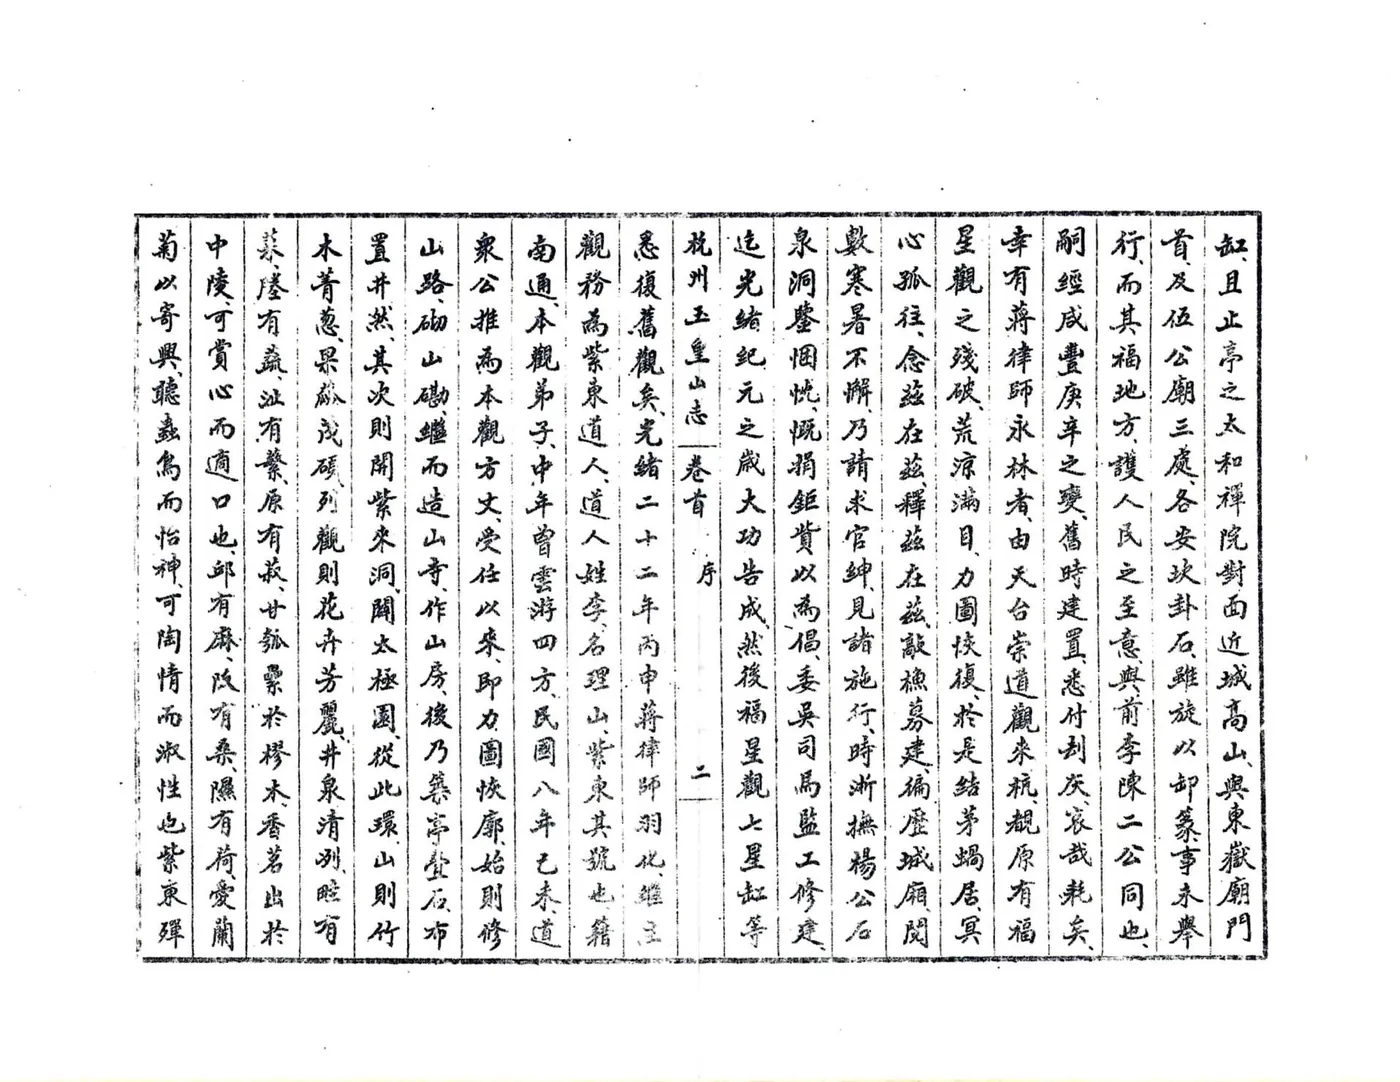 缸、且止亭之太和禪院對面近城高山、與東嶽廟門
首、及伍公廟三處、各安坎卦石、雖旋以卸篆、事未舉
行、而其福地方、護人民之至意、與前李陳二公同也、
嗣經咸豐庚辛之變、舊時建置、悉付刦灰、哀哉耗矣、
幸有蔣律師永林者、由天台崇道觀來杭、覩原有福
星觀之殘破、荒凉滿目、力圖恢復、於是結茅蝸居、冥
心孤往、念茲在茲、釋茲在茲、敲檍募建、徧歷城廂、閱
數寒暑不懈、乃請求官紳、見諸施行、時浙撫楊公石
泉洞鑒悃忱、慨捐鉅貲以為倡、委吳司馬監工修建、
迄光緒紀元之歲大功告成、然後福星觀七星缸等
杭州玉皇山志 卷首 序 二
悉復舊觀矣、光緒二十二年丙申蔣律師羽化、繼主
觀務為紫東道人、道人姓李、名理山、紫東其號也、籍
南通、本觀弟子、中年曾雲游四方、民國八年己未、道
衆公推為本觀方丈、受任以來、即力圖恢廓、始則修
山路、砌山磡、繼而造山寺、作山房、後乃築亭壘石、布
置井然、其次則開紫來洞、闢太極園、從此環山則竹
木菁葱、果蓏茂碩、列觀則花卉芳麗、井泉清冽、畦有
菜、陸有蔬、沚有蘩、原有菽、甘瓠纍於樛木、香茗出於
中陵、可賞心而適口也、邱有麻、阪有桑、隰有荷、愛蘭
菊以寄興、聽蟲鳥而怡神、可陶情而淑性也紫東殫